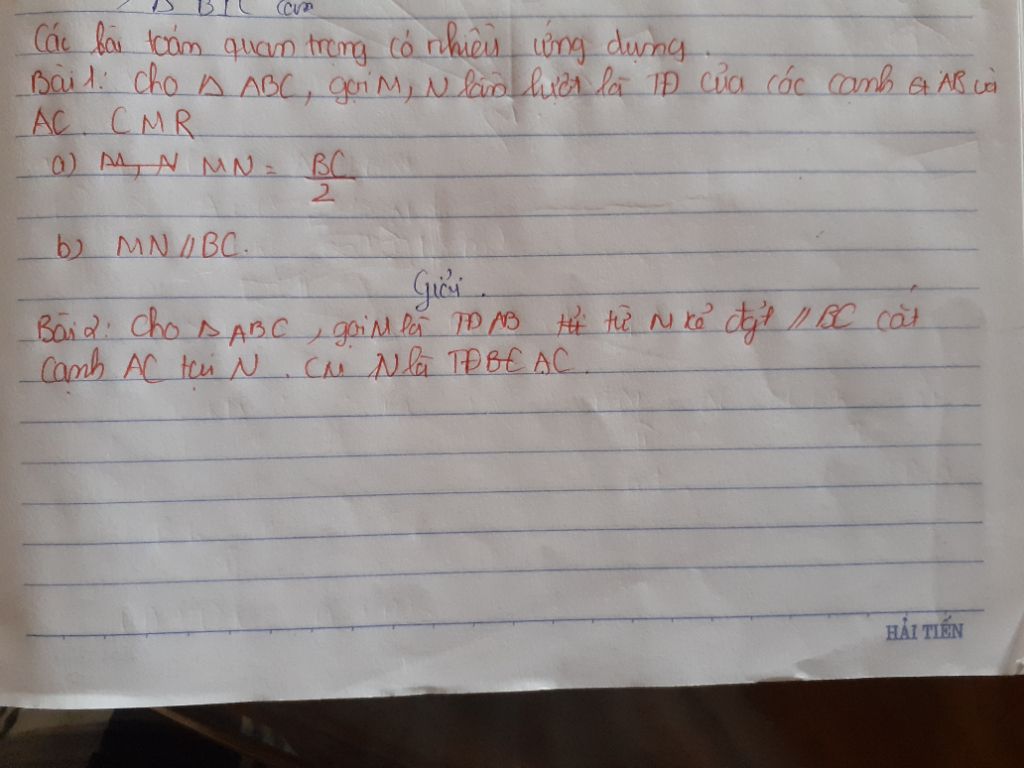 Các bài toán quan trọng có nhiều ứng dụng.
Bài 1: Cho Δ ABC, gọi M, N lần lượt là TĐ của các cạnh AB và
AC. CMR
a) M, N MN = BC/2
b) MN // BC.
Giải.
Bài 2: Cho Δ ABC, gọi M là TĐ AB từ N kẻ đgt // BC cắt
cạnh AC tại N. CM N là TĐ AC.
HẢI TIẾN